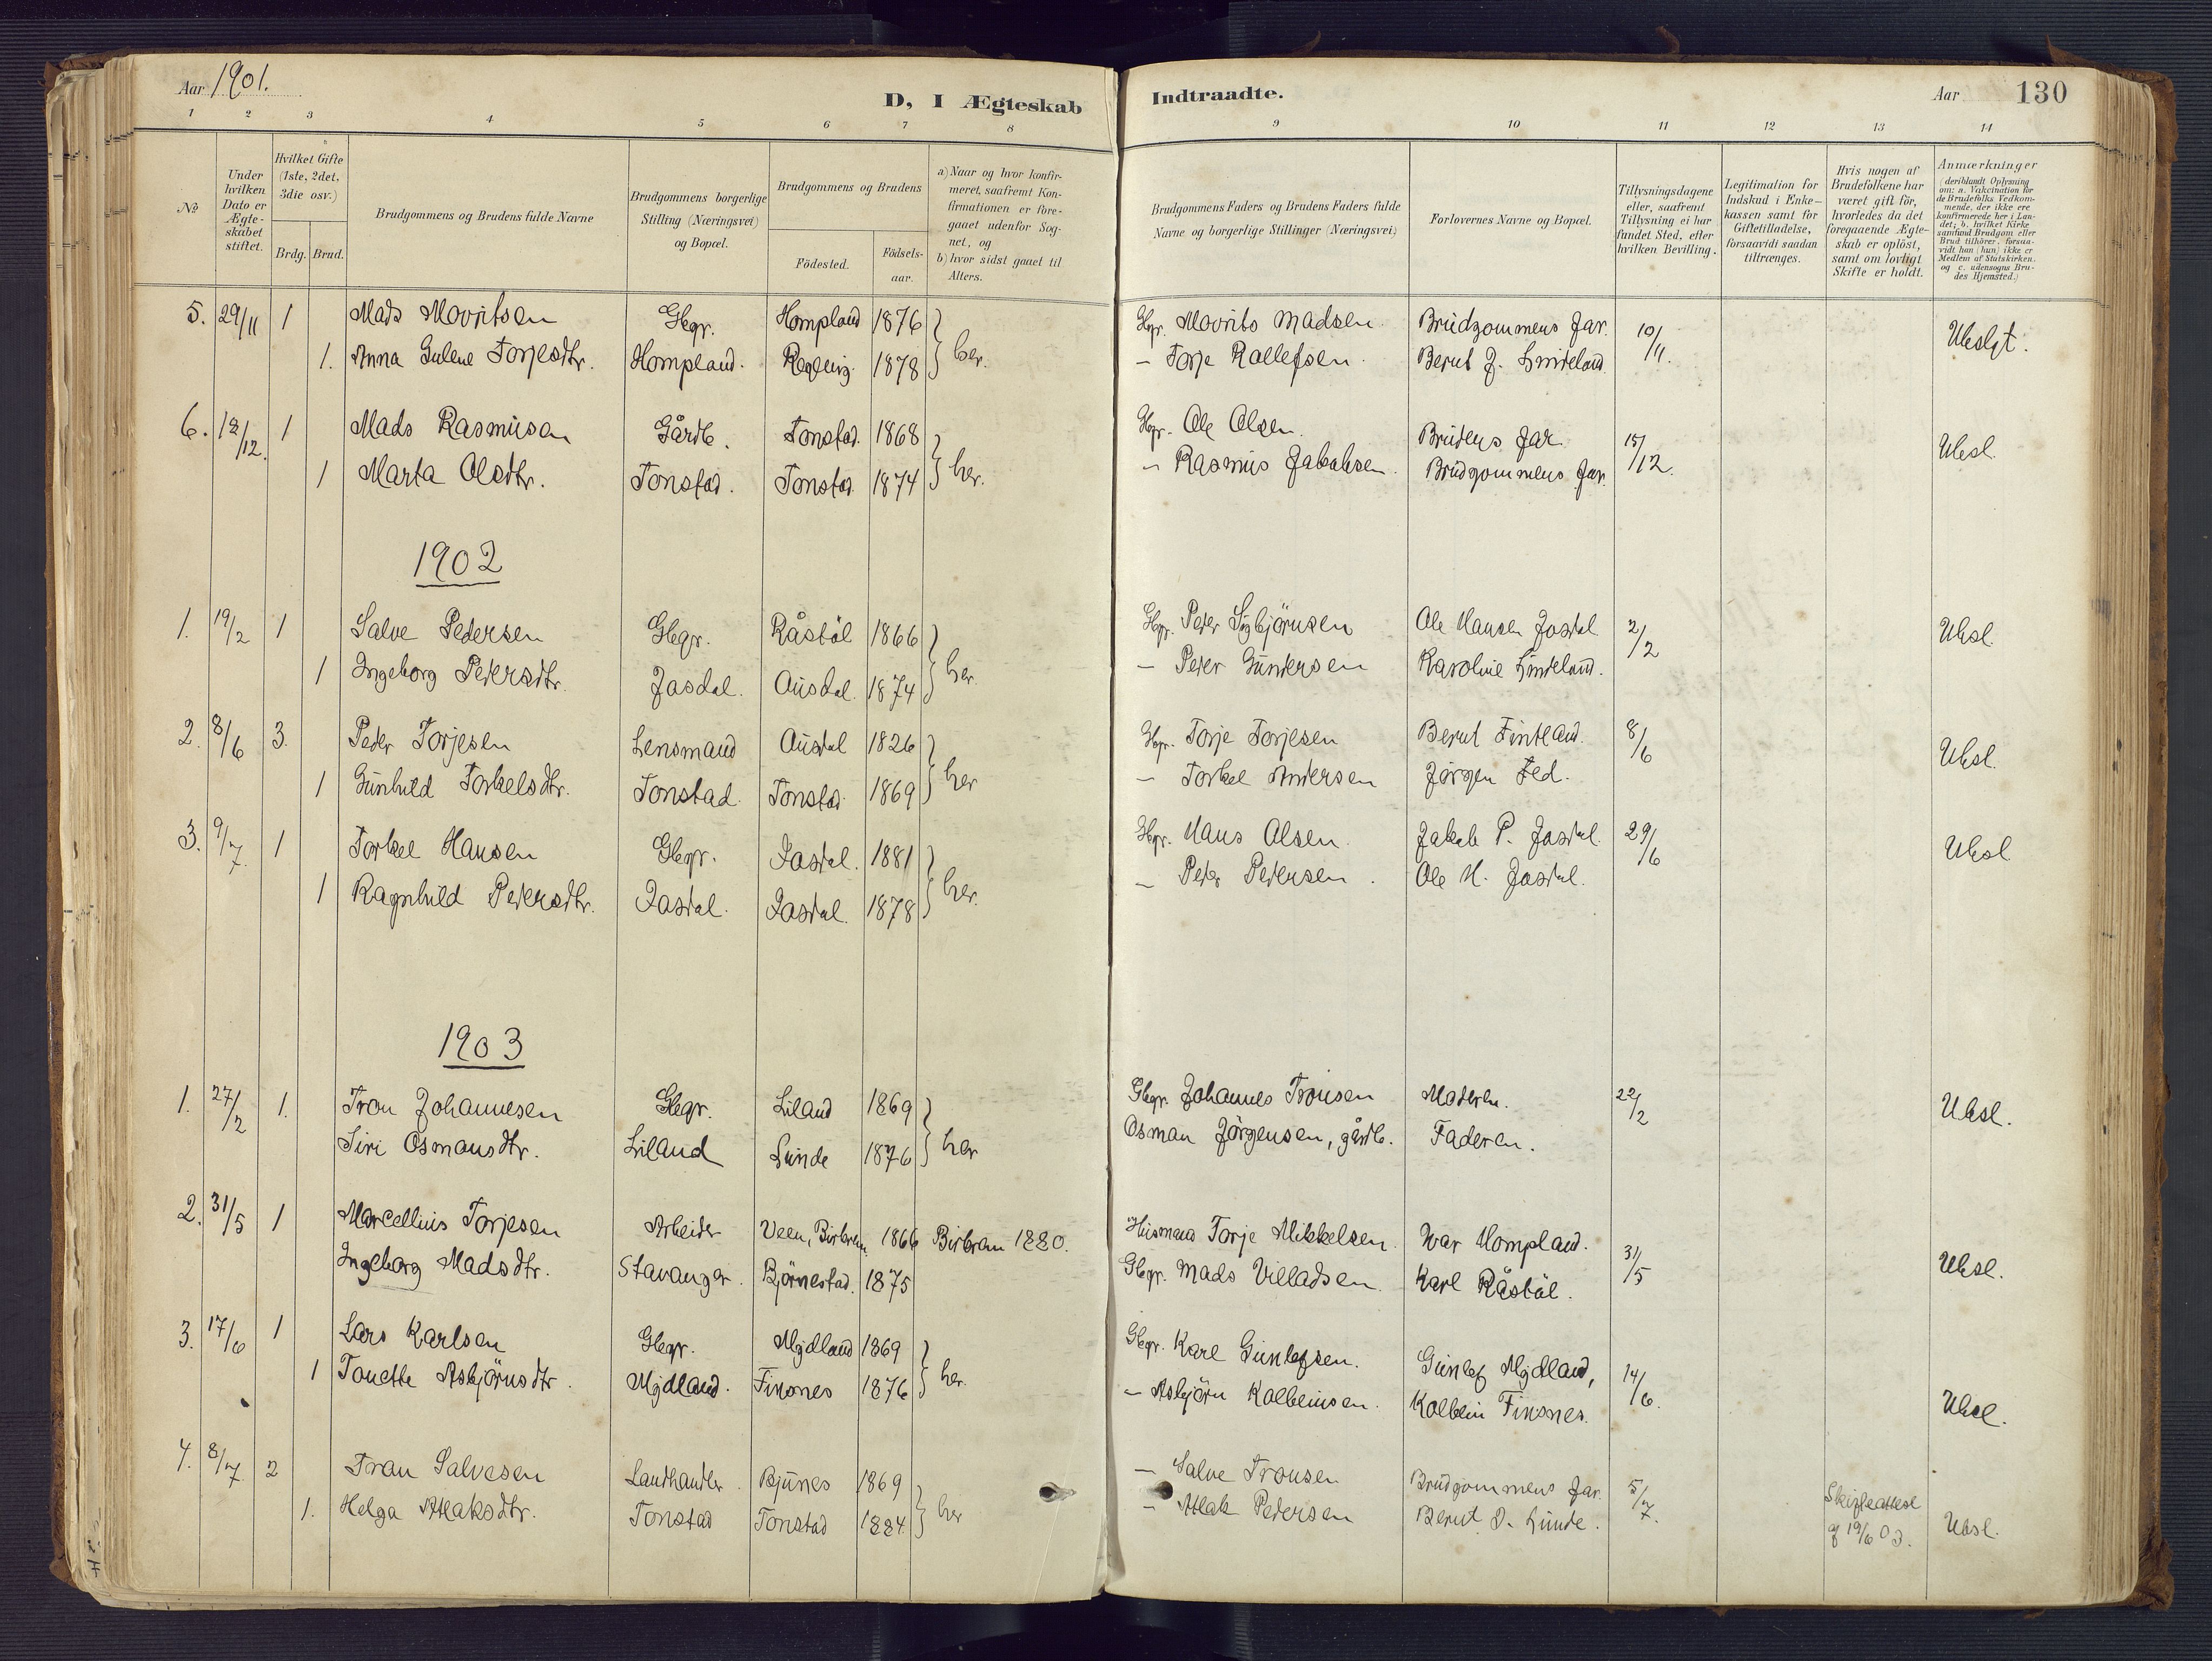 Aar 1901.
D, I Ægteskab
Indtraadte.
Aar 130
1 2 3 4 5 6 7 8 9 10 11 12 13 14
No
Under hvilken Dato er Ægte-skabet stiftet.
Hvilket Gifte (1ste, 2det, 3die osv.)
Brdg. Brud.
Brudgommens og Brudens fulde Navne
Brudgommens borgerlige Stilling (Næringsvei) og Bopæl.
Brudgommens og Brudens
Födested.
Födsels-aar.
a) Naar og hvor konfir-meret, saafremt Kon-firmationen er fore-gaaet udenfor Sog-net, og
b) hvor sidst gaaet til Alters.
Brudgommens Faders og Brudens Faders fulde Navne og borgerlige Stillinger (Næringsvei)
Forlovernes Navne og Bopæl.
Tillysningsdagene eller, saafremt Tillysning ei har fundet Sted, efter hvilken Bevilling.
Legitimation for Indskud i Enke-kassen samt for Giftetilladelse, forsaavidt saadan tiltrænges.
Hvis nogen af Brudefolkene har været gift för, hvorledes da det foregaaende Ægte-skab er oplöst, samt om lovligt Skifte er holdt.
Anmærkninger (deriblandt Oplysning om: a. Vakcination for de Brudefolks Vedkom-mende, der ikke ere konfirmerede her i Lan-det; b. hvilket Kirke samfund Brudgom eller Brud tilhörer, forsaa-vidt han (hun) ikke er Medlem af Statskirken, og c. udensogns Bru-des Hjemsted.)
5. 29/11 1 Mads Movritsen Gbgr. Hompland 1876 Gbgr. Movrits Madsen Brudgommens far. 10/11. Ubslgt.
1. Anna Gulene Torjesdtr. Hompland. 1878 her. – Torje Rollefsen. Bernt J. Lindeland
6. 12/12. 1 Mads Rasmusen Gårdb. Tonstad. 1868 Gbgr. Ole Olsen. Brudens far 15/12. Ubsl.
1 Marta Olsdtr. Tonstad. Tonstad. 1874 her. – Rasmus Jakobsen. Brudgommens far.
1902
1. 19/2 1 Salve Pedersen Gbgr. Råstöl 1866 Gbgr. Peder Sigbjörnsen Ole Hansen Josdal 2/2 Ubsl.
1 Ingeborg Pedersdtr. Josdal. Ausdal. 1874 her. – Peder Gundersen Karoline Lindeland.
2. 8/6 3. Peder Torjesen Lensmand Ausdal 1826 Gbgr. Torje Torjesen Bernt Fintland. 8/6 Ubsl.
1 Gunhild Torkelsdtr. Tonstad. Tonstad. 1869 her – Torkel Andersen Jörgen Fed.
3. 9/7. 1 Torkel Hansen Gbgr. Josdal. 1881 Gbgr. Hans Olsen. Jakob P. Josdal. 29/6 Ubsl.
1 Ragnhild Pedersdtr. Josdal. Josdal. 1878 her. – Peder Pedersen. Ole H. Josdal.
1903
1. 27/2 1. Tron Johannesen Gbgr. Liland 1869 Gbgr. Johannes Tronsen Moderen. 22/2 Ubsl.
Siri Osmansdtr. Liland Lunde 1876 her Osman Jörgensen, gårdb. Faderen.
2. 31/5 1 Marcellius Torjesen Arbeider Veen, Birkrem. 1866 Birkrem 1880. Husmand Torje Mikkelsen. Ivar Hompland. 31/5 Ubsl.
Ingeborg Madsdtr. Stavanger. Björnestad. 1875 Gbgr. Mads Villadsen. Karl Råstöl.
3. 17/6 1 Lars Karlsen Gbgr. Mydland 1869 Gbgr. Karl Gunlefsen. Gunlef Mydland, 14/6. Ubsl.
1 Tonette Asbjörnsdtr. Mydland. Finsnes 1876 her. – Asbjörn Kolbeinsen. Kolbein Finsnes.
4. 8/7 2 Tron Salvesen Landhandler Bjunes 1869 – Salve Tronsen Brudgommens far. 5/7. Skifteattest af 19/6 03. Ubsl.
1. Helga Atlaksdtr. Tonstad Tonstad 1884. her – Atlak Pedersen Bernt O. Lunde.